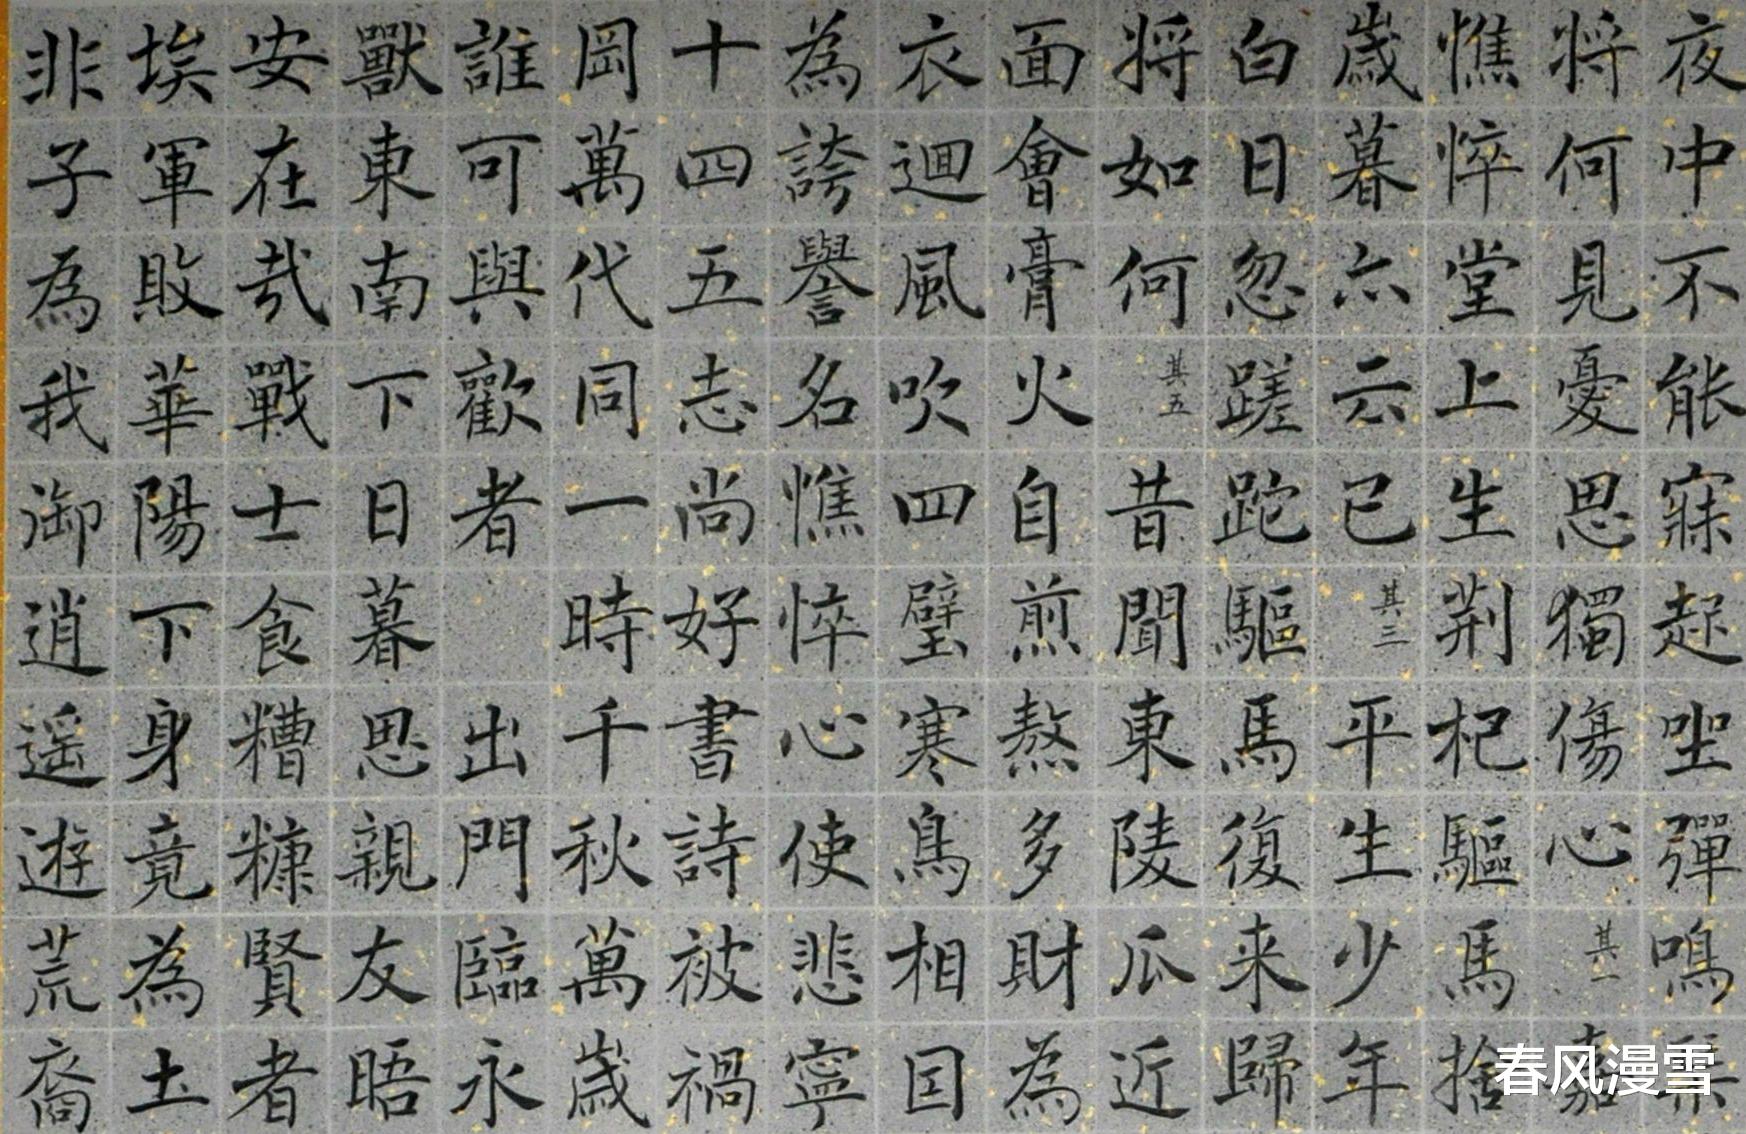 夜中不能寐起坐彈鳴琴
将何見憂思獨傷心其一嘉
憔悴堂上生荆杞驅馬捨
歲暮亦云已其三平生少年
白日忽蹉跎驅馬復来歸
将如何其五昔聞東陵瓜近
面會膏火自煎熬多財為
衣迴風吹四壁寒鳥相因
為誇譽名憔悴心使悲寧
十四五志尚好書詩被禍
岡萬代同一時千秋萬歲
誰可與歡者出門臨永
獸東南下日暮思親友晤
安在哉戰士食糟糠賢者
埃軍敗華陽下身竟為土
非子為我御逍遥遊荒裔
春风漫雪